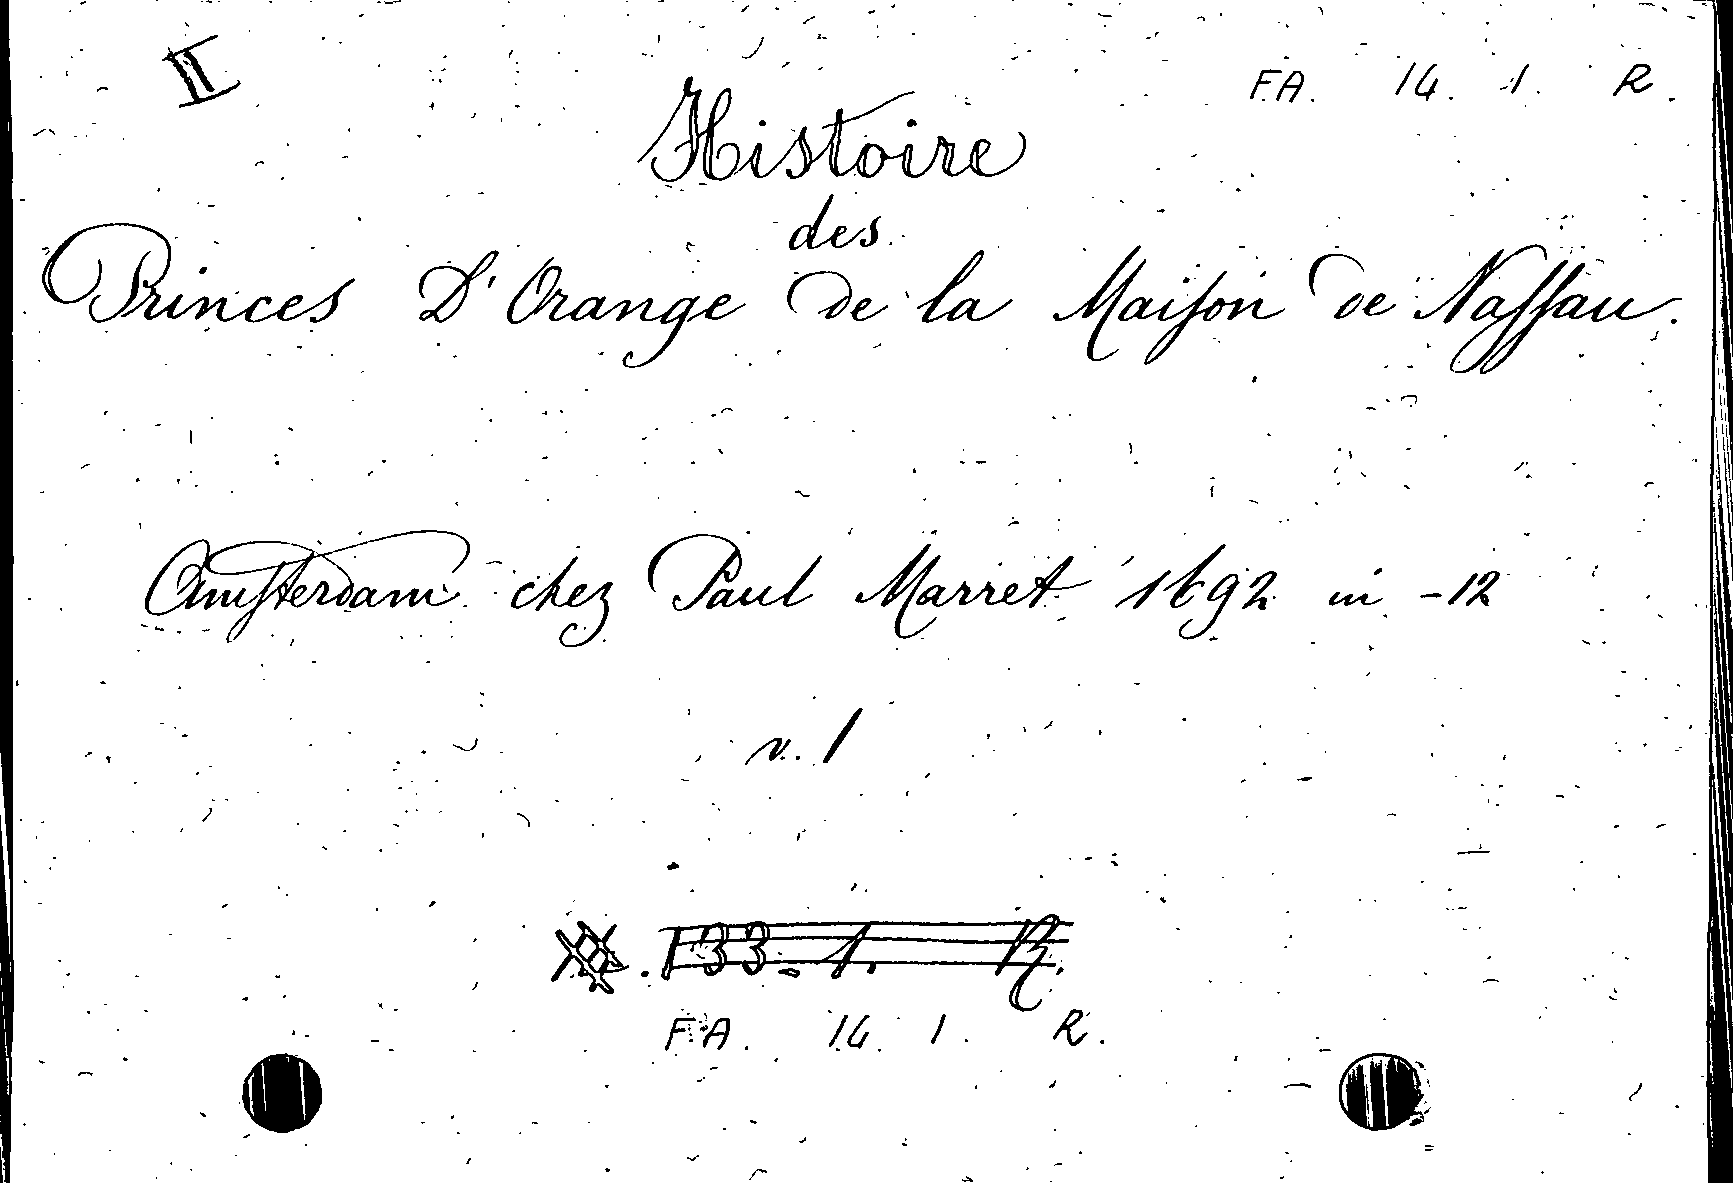 II
FA. 14. 1. R.
Histoire
des
Princes D'Orange de la Maiſon de Naſſau.
Amſterdam chez Paul Marret 1692 in -12
v. 1
133-1. R.
FA. 14. 1. R.